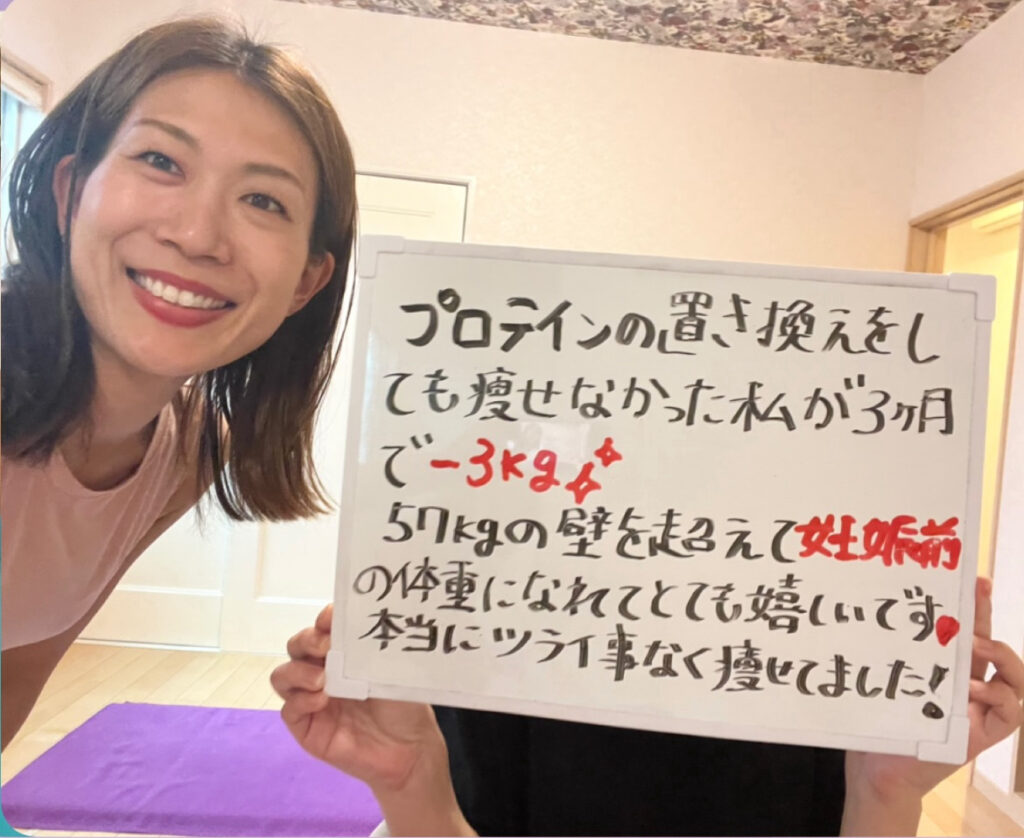 プロテインの置き換えをし
ても痩せなかった私が3ヶ月
で-3kg
57kgの壁を超えて妊娠前
の体重になれてとても嬉しいです
本当にツライ事なく痩せてました!